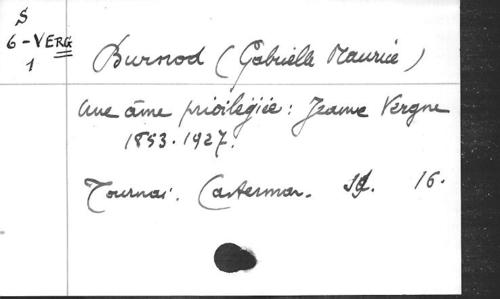 S
6-VERG
1
Burnod (Gabrielle Maurice)
Une âme privilégiée: Jeanne Vergne
1853-1927.
Tournai. Casterman. 16.